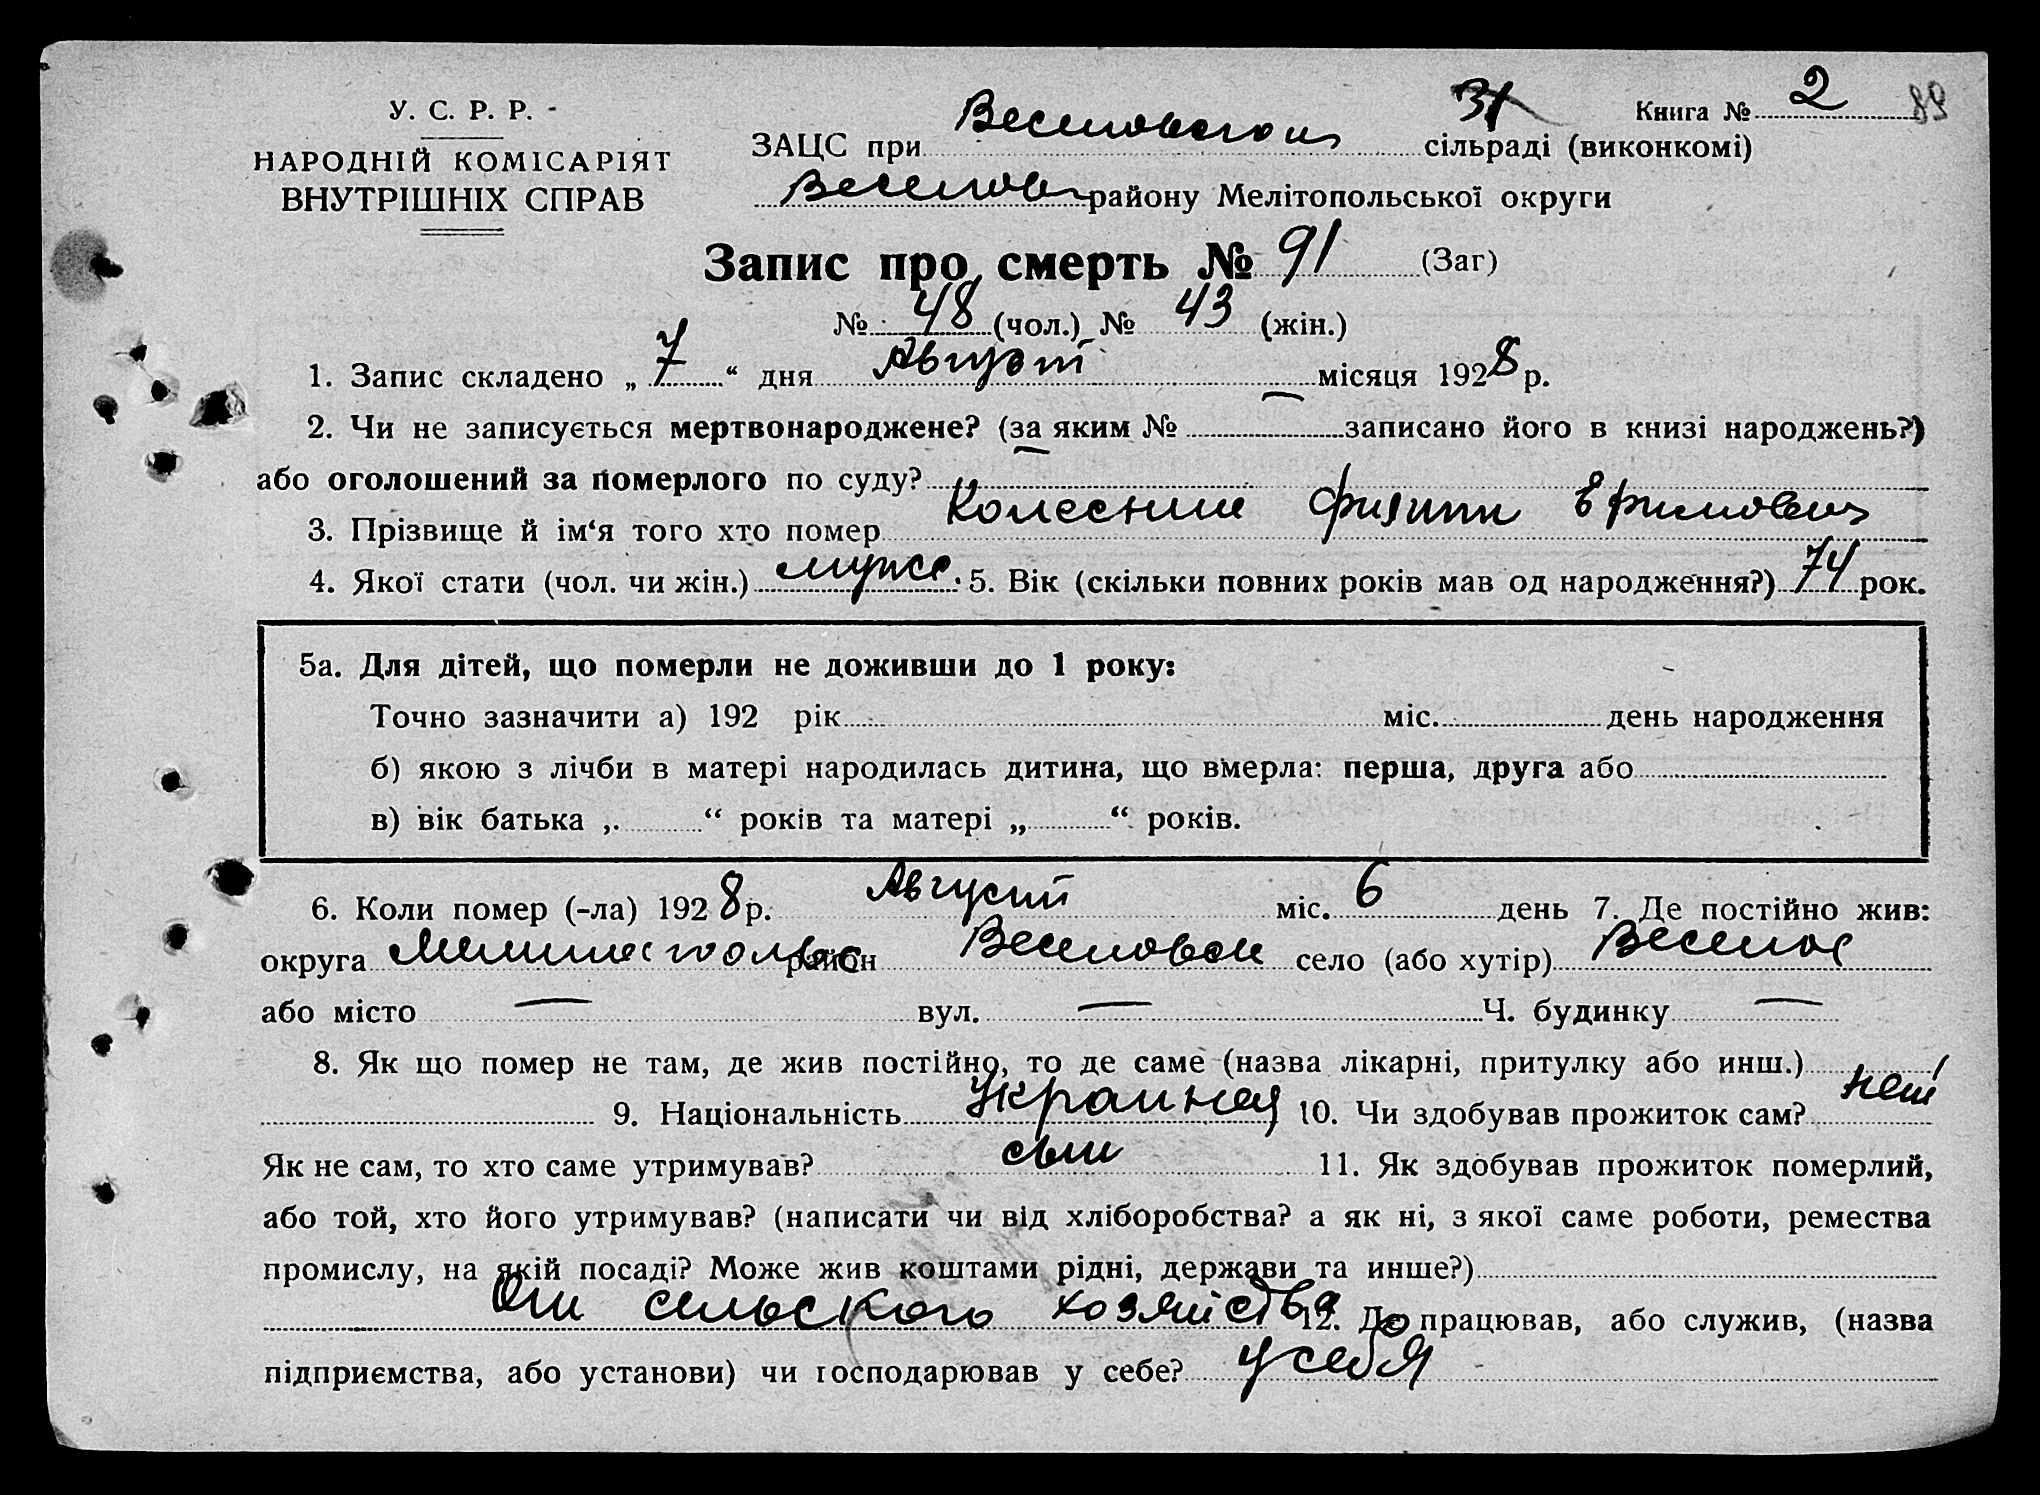 У. С. Р. Р.
НАРОДНІЙ КОМІСАРІЯТ
ВНУТРІШНІХ СПРАВ
31 Книга № 2
ЗАЦС при Веселовском сільраді (виконкомі)
Веселов району Мелітопольської округи
Запис про смерть № 91 (Заг)
№ 48 (чол.) № 43 (жін.)
1. Запис складено „ 7 “ дня Август місяця 1928 р.
2. Чи не записується мертвонароджене? (за яким № — записано його в книзі народжень?)
або оголошений за померлого по суду? —
3. Прізвище й ім‘я того хто помер Колесник Филипп Ефимович
4. Якої стати (чол. чи жін.) мужс. 5. Вік (скільки повних років мав од народження?) 74 рок.
5а. Для дітей, що померли не доживши до 1 року:
Точно зазначити а) 192 рік міс. день народження
б) якою з лічби в матері народилась дитина, що вмерла: перша, друга або
в) вік батька „ “ років та матері „ “ років.
6. Коли помер (-ла) 1928 р. Август міс. 6 день 7. Де постійно жив:
округа район Веселовск село (або хутір) Веселое
або місто — вул. — Ч. будинку —
8. Як що помер не там, де жив постійно, то де саме (назва лікарні, притулку або инш.)
9. Національність 10. Чи здобував прожиток сам? нет
Як не сам, то хто саме утримував? сын 11. Як здобував прожиток померлий,
або той, хто його утримував? (написати чи від хліборобства? а як ні, з якої саме роботи, ремества
промислу, на якій посаді? Може жив коштами рідні, держави та инше?)
От сельского хозяйства 12. Де працював, або служив, (назва
підприємства, або установи) чи господарював у себе? у себя